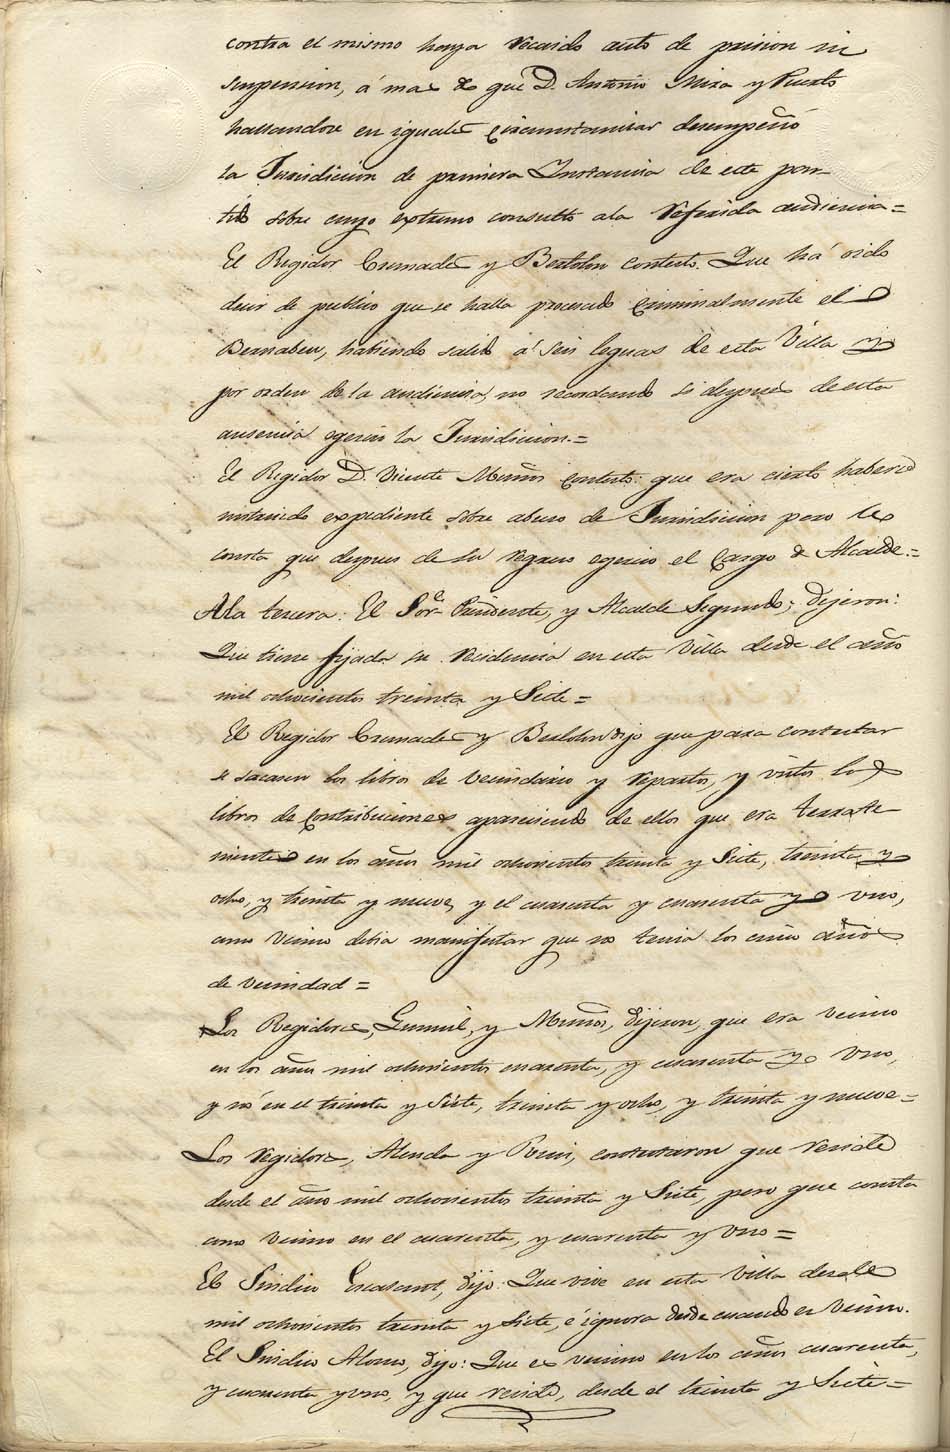 contra el mismo haya recaido auto de prision ni
suspension, á mas de que D. Antonio Mira y Puerto
hallandose en iguales circunstancias desempeñó
la Jurisdicion de primera Instancia de este par-
tido sobre cuyo extremo consultó ala referida audiencia=
El Regidor Cremades y Bertolon contestó. Que há oido
decir de publico que se halla procesado Criminalmente el
Bernabeu, habiendo salido á seis leguas de esta Villa y
por orden de la audiencia, no recordando si despues de esta
ausencia egerció la Jurisdicion.=
El Regidor D. Vicente Muños contestó: que era cierto haberse
instruido expediente sobre abuso de Jurisdicion pero le
consta que despues de su regreso egerció el Cargo de Alcalde.=
Ala tercera: El Sor. Presidente, y Alcalde Segundo; dijeron:
Que tiene fijada su recidencia en esta Villa desde el año
mil ochocientos treinta y Siete=
El Regidor Cremades y Bertolon dijo que para contestar
se sacasen los libros de vecindario y repartos, y vistos los
libros de Contribuciones apareciendo de ellos que era terrate
niente en los años mil ochocientos treinta y Siete, treinta y
ocho, y treinta y nueve, y el cuarenta y cuarenta y uno,
como vecino debia manifestar que no tenia los cinco años
de vecindad=
Los Regidores, Gumiel, y Muños, dijeron, que era vecino
en los años mil ochocientos cuarenta, y cuarenta y uno,
y nó en el treinta y Siete, treinta y ocho, y treinta y nueve=
Los regidores, Alenda y Perez, contestaron que reside
desde el año mil ochocientos treinta y Siete, pero que consta
como vecino en el cuarenta, y cuarenta y uno=
El Sindico Escasant, dijo: Que vive en esta Villa desde
mil ochocientos treinta y Siete, é ignora desde cuando es vecino.
El Sindico Alonso, dijo: Que es vecino en los años cuarenta,
y cuarenta y uno, y que reside, desde el treinta y Siete=